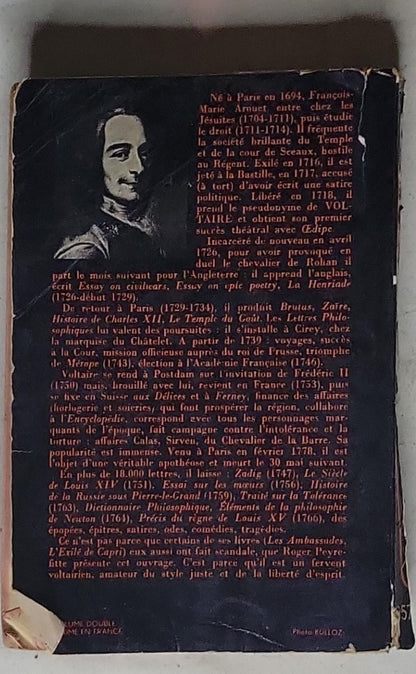 Né à Paris en 1694, François-
Marie Arouet entre chez les
Jésuites (1704-1711), puis étudie
le droit (1711-1714). Il fréquente
la société brillante du Temple
et de la cour de Sceaux, hostile
au Régent. Exilé en 1716, il est
jeté à la Bastille, en 1717, accusé
(à tort) d'avoir écrit une satire
politique. Libéré en 1718, il
prend le pseudonyme de VOL-
TAIRE et obtient son premier
succès théâtral avec Œdipe.
Incarcéré de nouveau en avril
1726, pour avoir provoqué en
duel le chevalier de Rohan il
part le mois suivant pour l'Angleterre : il apprend l'anglais,
écrit Essay on civilwars, Essay on epic poetry, La Henriade
(1726-début 1729).
De retour à Paris (1729-1734), il produit Brutus, Zaïre,
Histoire de Charles XII, Le Temple du Goût. Les Lettres Philo-
sophiques lui valent des poursuites : il s'installe à Cirey, chez
la marquise du Châtelet. A partir de 1739 : voyages, succès
à la Cour, mission officieuse auprès du roi de Prusse, triomphe
de Mérope (1743), élection à l'Académie Française (1746).
Voltaire se rend à Postdam sur l'invitation de Frédéric II
(1750) mais, brouillé avec lui, revient en France (1753), puis
se fixe en Suisse aux Délices et à Ferney, finance des affaires
(horlogerie et soieries) qui font prospérer la région, collabore
à l'Encyclopédie, correspond avec tous les personnages mar-
quants de l'époque, fait campagne contre l'intolérance et la
torture : affaires Calas, Sirven, du Chevalier de la Barre. Sa
popularité est immense. Venu à Paris en février 1778, il est
l'objet d'une véritable apothéose et meurt le 30 mai suivant.
En plus de 18.000 lettres, il laisse : Zadig (1747), Le Siècle
de Louis XIV (1751), Essai sur les mœurs (1756), Histoire
de la Russie sous Pierre-le-Grand (1759), Traité sur la Tolérance
(1763), Dictionnaire Philosophique, Éléments de la philosophie
de Newton (1764), Précis du règne de Louis XV (1766), des
épopées, épîtres, satires, odes, comédies, tragédies.
Ce n'est pas parce que certains de ses livres (Les Ambassades,
L'Exilé de Capri) eux aussi ont fait scandale, que Roger Peyre-
fitte présente cet ouvrage. C'est parce qu'il est un fervent
voltairien, amateur du style juste et de la liberté d'esprit.
LUME DOUBLE
IMÉ EN FRANCE
Photo BULLOZ